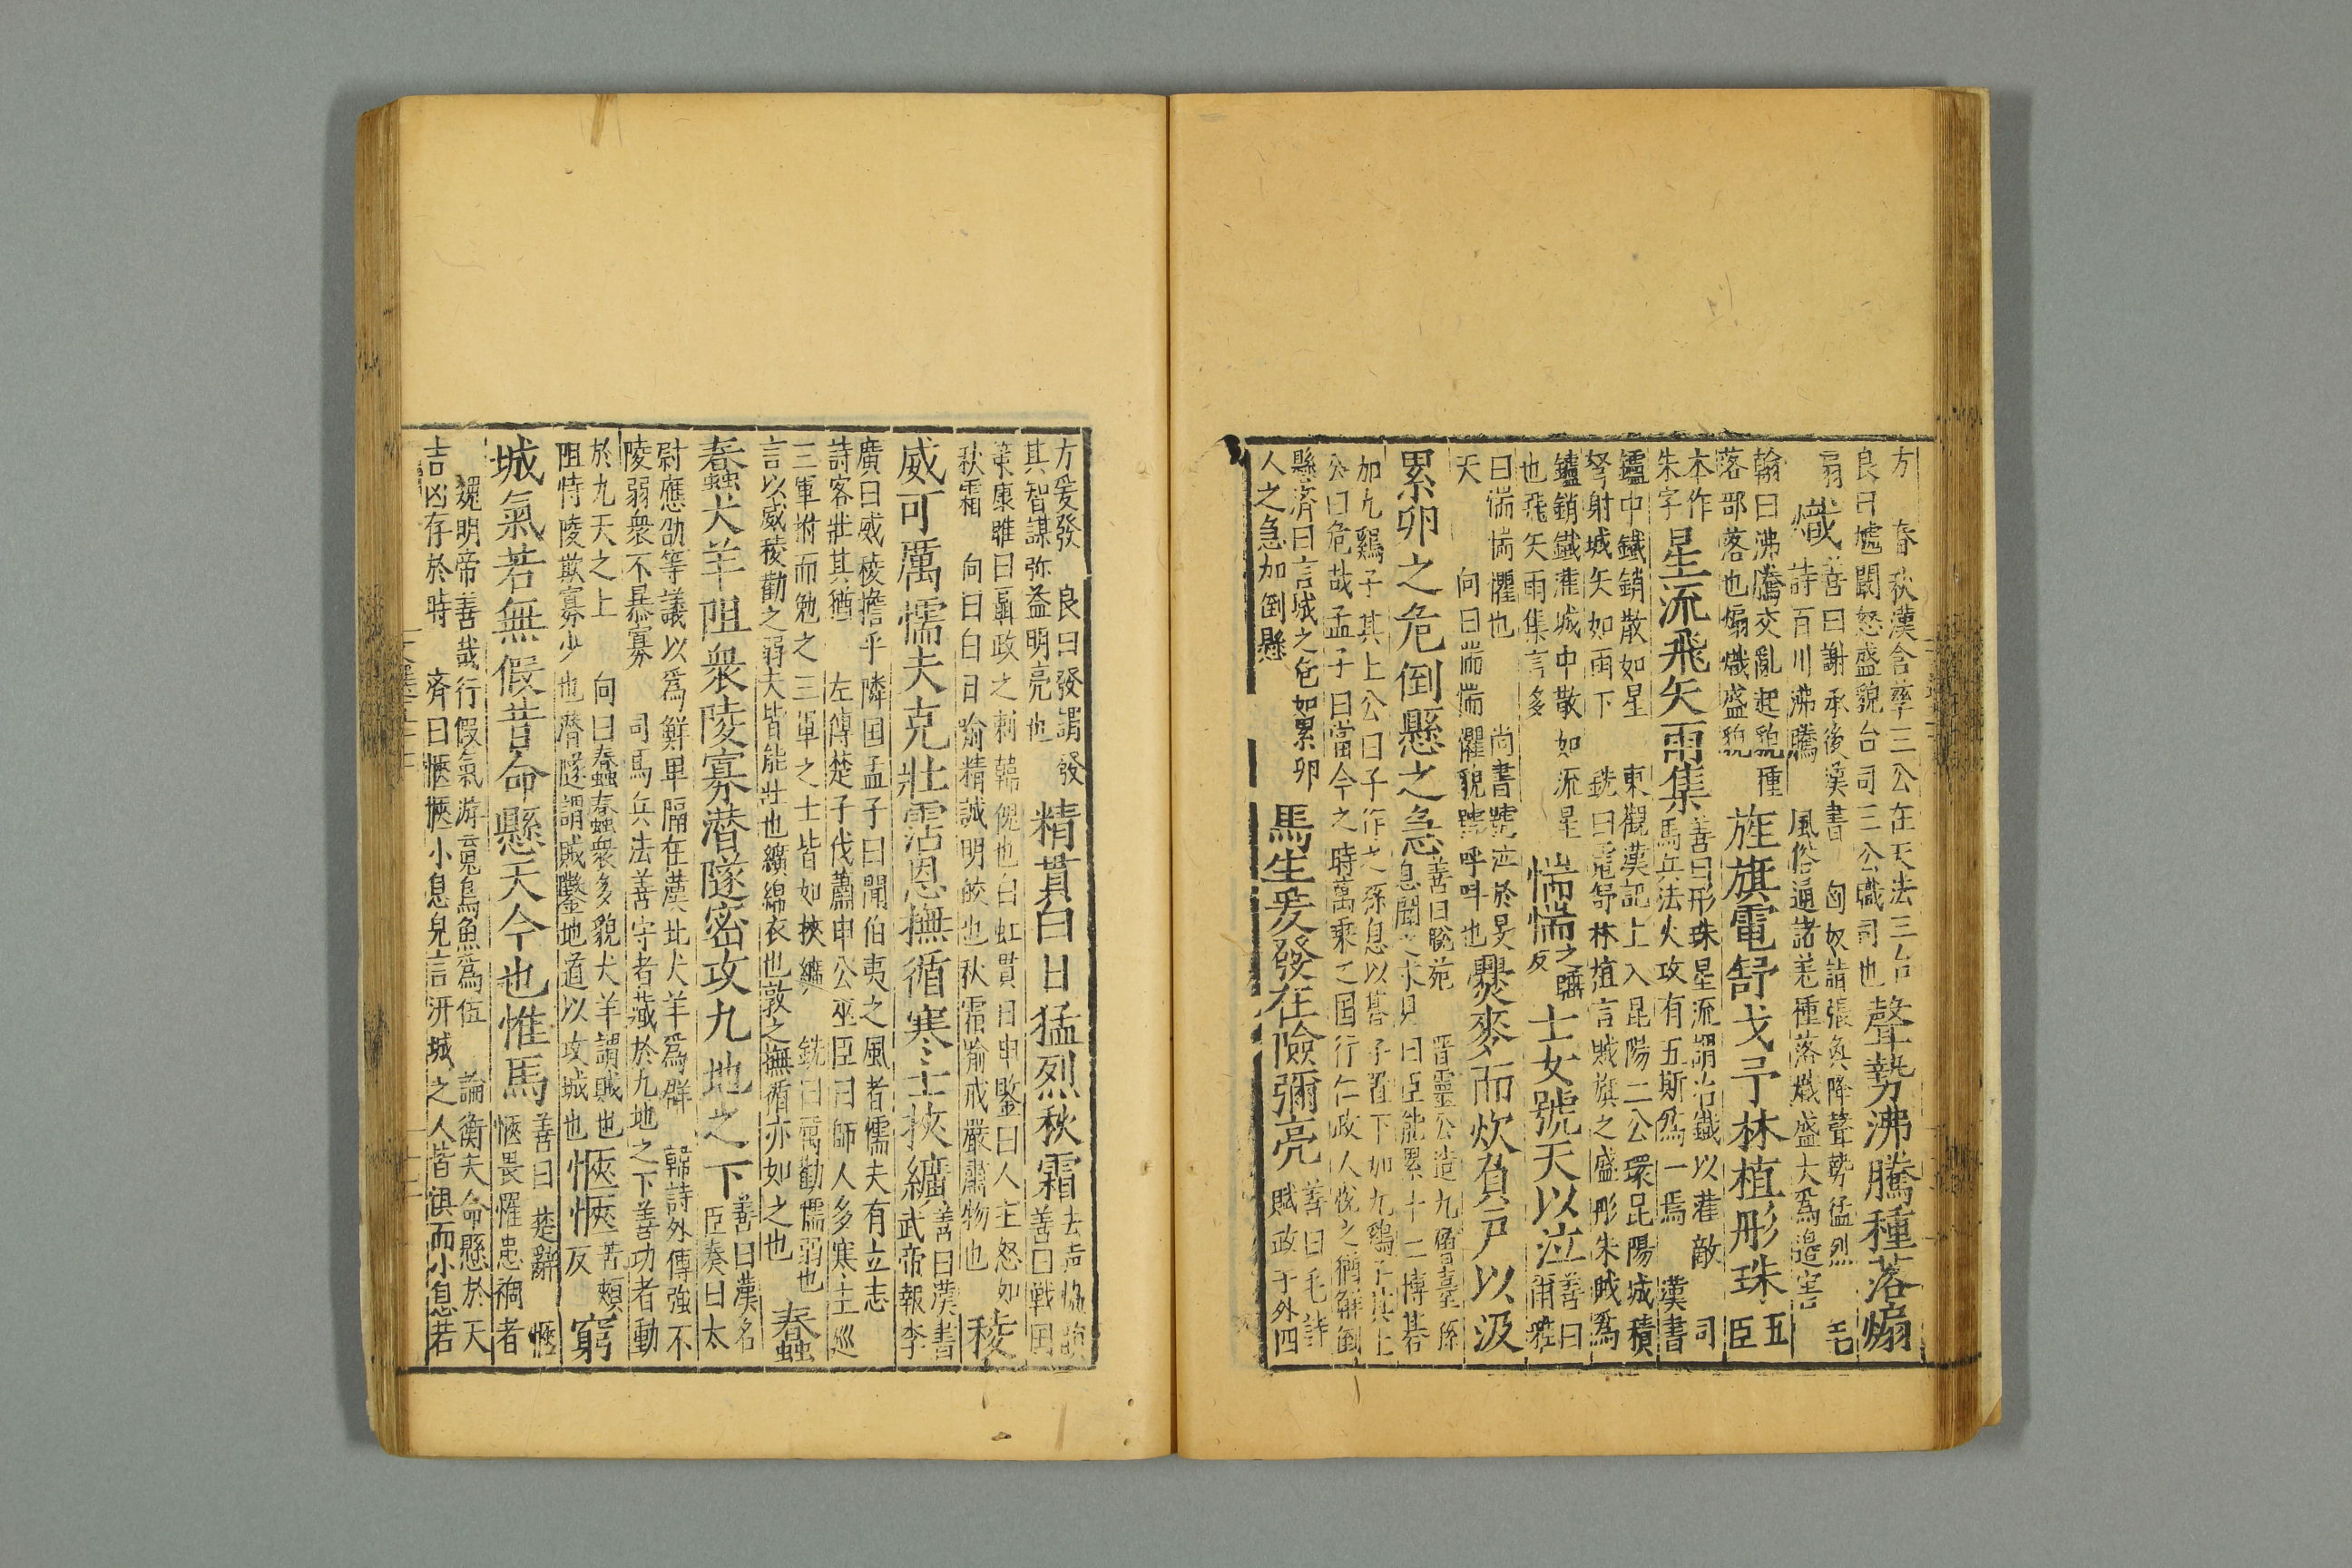 方　春秋漢含孳三公在天法三台
良曰墟闞怒盛貌台司三公職司也
聲勢沸騰種落煽
扇
熾
善曰謝承後漢書　匈奴請張奐降聲勢猛烈
詩百川沸騰　風俗通諸羌種落熾盛大爲邊害
翰曰沸騰交亂起貌種
落部落也煽熾盛貌
旌旗電舒戈矛林植彤珠
五臣
本作
朱字
星流飛矢雨集
善曰彤珠星流謂冶鐵以灌敵　司
馬兵法火攻有五斯爲一焉　漢書
鑪中鐵銷散如星　東觀漢記上入昆陽二公環昆陽城積
弩射城矢如雨下　銑曰電舒林植言賊旗之盛彤朱賊爲
鑪銷鐵灌城中散如流星
也飛矢雨集言多
惴惴
之睡
反
士女號天以泣
善曰
爾雅
曰惴惴懼也　尚書號泣於旻
天　向曰惴惴懼貌號呼叫也
爨麥而炊負戶以汲
累卵之危倒懸之急
善曰說苑　晉靈公造九層臺孫
息聞之求見曰臣能累十二博棊
加九鷄子其上公曰子作之孫息以棊子置下加九鷄子其上
公曰危哉孟子曰當今之時萬乘之国行仁政人悅之猶解倒
懸濟曰言城之危如累卵
人之急加倒懸
馬生爰發在險彌亮
善曰毛詩
賦政于外四
方爰發　良曰發謂發
其智謀弥益明亮也
精貫白日猛烈秋霜
去声協韻
善曰戰国
策康雎曰聶政之刺韓傀也白虹貫日申鑒曰人主怒如
秋霜　向曰白日喻精誠明皎也秋霜喻戒嚴肅物也
稜
威可厲懦夫克壯霑恩撫循寒士挾纊
善曰漢書
武帝報李
廣曰威稜憺乎隣国孟子曰聞伯夷之風者懦夫有立志
詩客壯其猶　左傳楚子伐蕭申公巫臣曰師人多寒主巡
三軍拊而勉之三軍之士皆如挾纊　銑曰厲勸懦弱也
言以威稜勸之弱夫皆能壯也纊綿衣也敦之撫循亦如之也
蠢蠢犬羊阻衆陵寡潛隧密攻九地之下
善曰漢名
臣奏曰太
尉應劭等議以爲鮮卑隔在漢北犬羊爲群　韓詩外傳強不
陵弱衆不暴寡　司馬兵法善守者藏於九地之下善功者動
於九天之上　向曰蠢蠢衆多貌犬羊謂賊也
阻恃陵欺寡少也潛隧謂賊鑿地道以攻城也
愜愜
苦頰
反
窮
城氣若無假昔命懸天今也惟馬
善曰　楚辭　愜
愜畏罹患禍者
魏明帝善哉行假氣游魂鳥魚爲伍　論衡夫命懸於天
吉凶存於時　齊曰愜愜小息皃言汧城之人皆俱而小息若